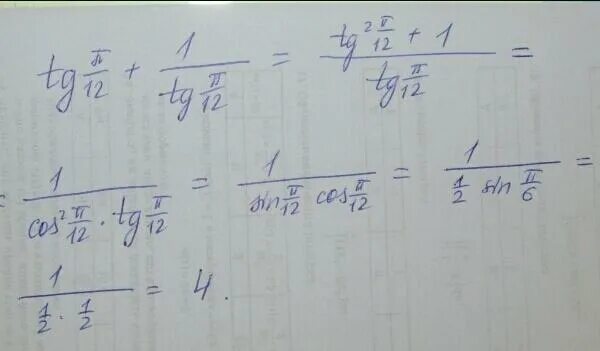 tg π/12 + 1/(tg π/12) = (tg² π/12 + 1)/(tg π/12) =
= 1/(cos² π/12 · tg π/12) = 1/(sin π/12 cos π/12) = 1/(1/2 sin π/6) =
1/(1/2 · 1/2) = 4.